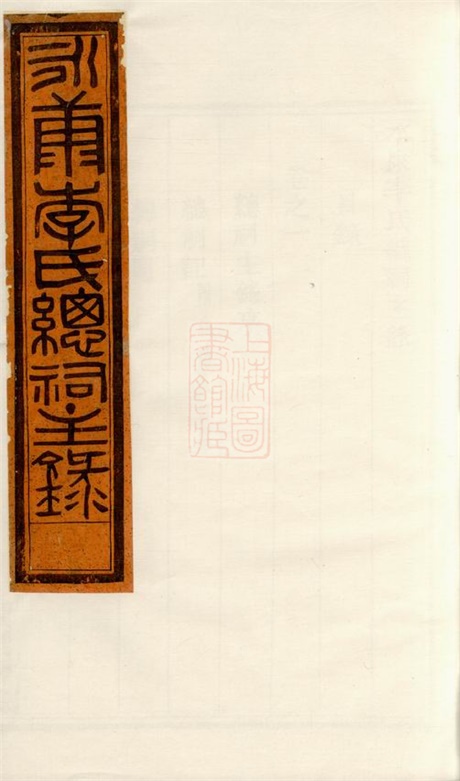 永康李氏總祠主錄
上海圖
書館藏